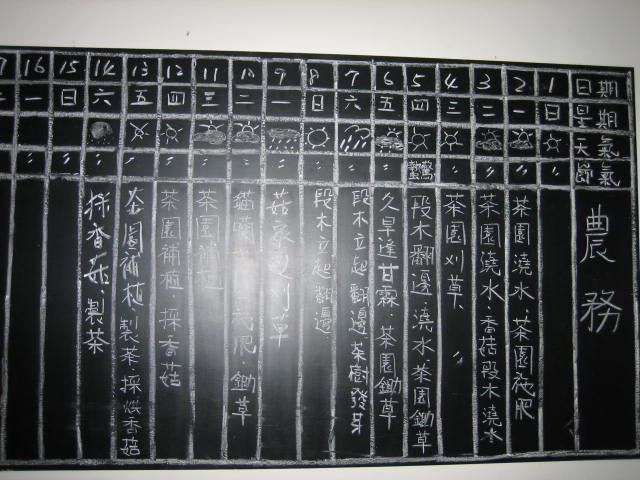 日期 1 2 3 4 5 6 7 8 9 10 11 12 13 14 15 16
星期 日 一 二 三 四 五 六 日 一 二 三 四 五 六 日 一
天氣
節氣 驚蟄
農務
茶園澆水.茶園施肥
茶園澆水.香菇段木澆水
茶園刈草
段木翻邊.澆水茶園鋤草
久旱逢甘霖.茶園鋤草
段木立起翻邊.茶樹發芽
段木立起翻邊.
菇寮 刈草
肥.鋤草
茶園補植
茶園補植.採香菇
茶園補植.製茶.採 香菇
採香菇.製茶